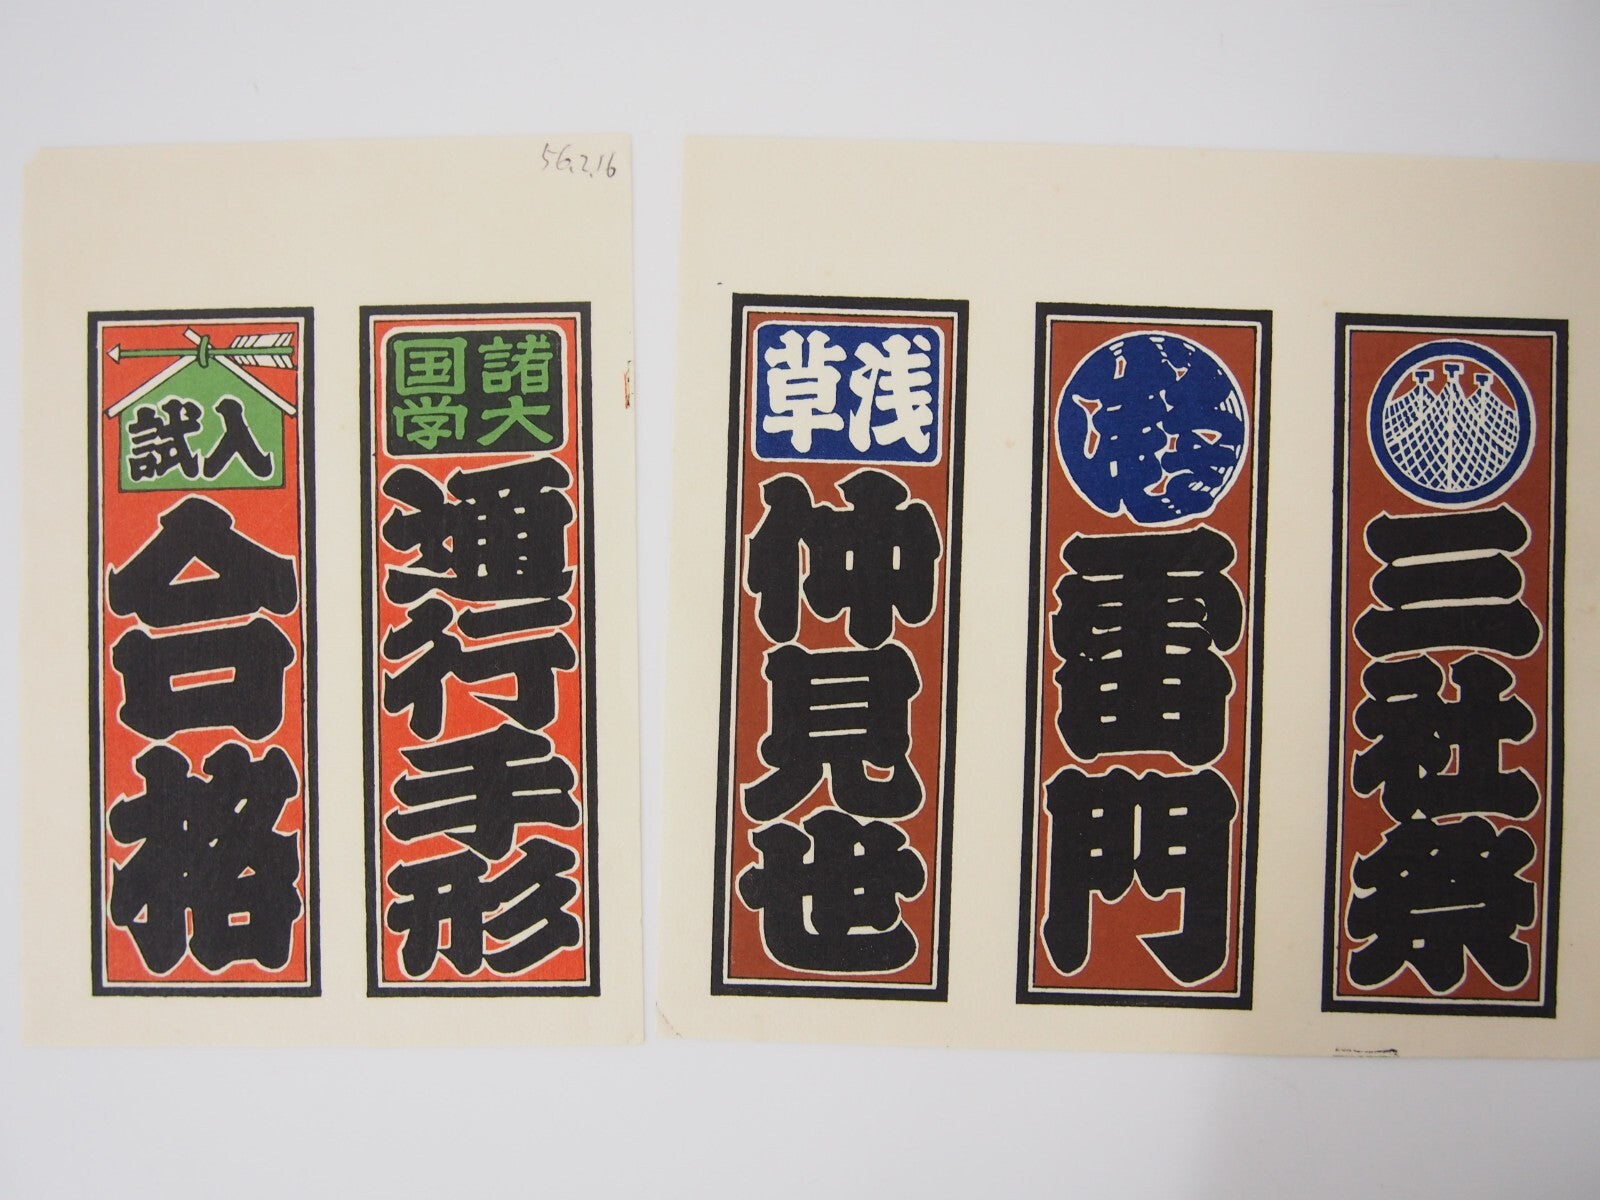 56.2.16
入試
合格
諸大
国学
通行手形
浅草
仲見世
雷門
三社祭